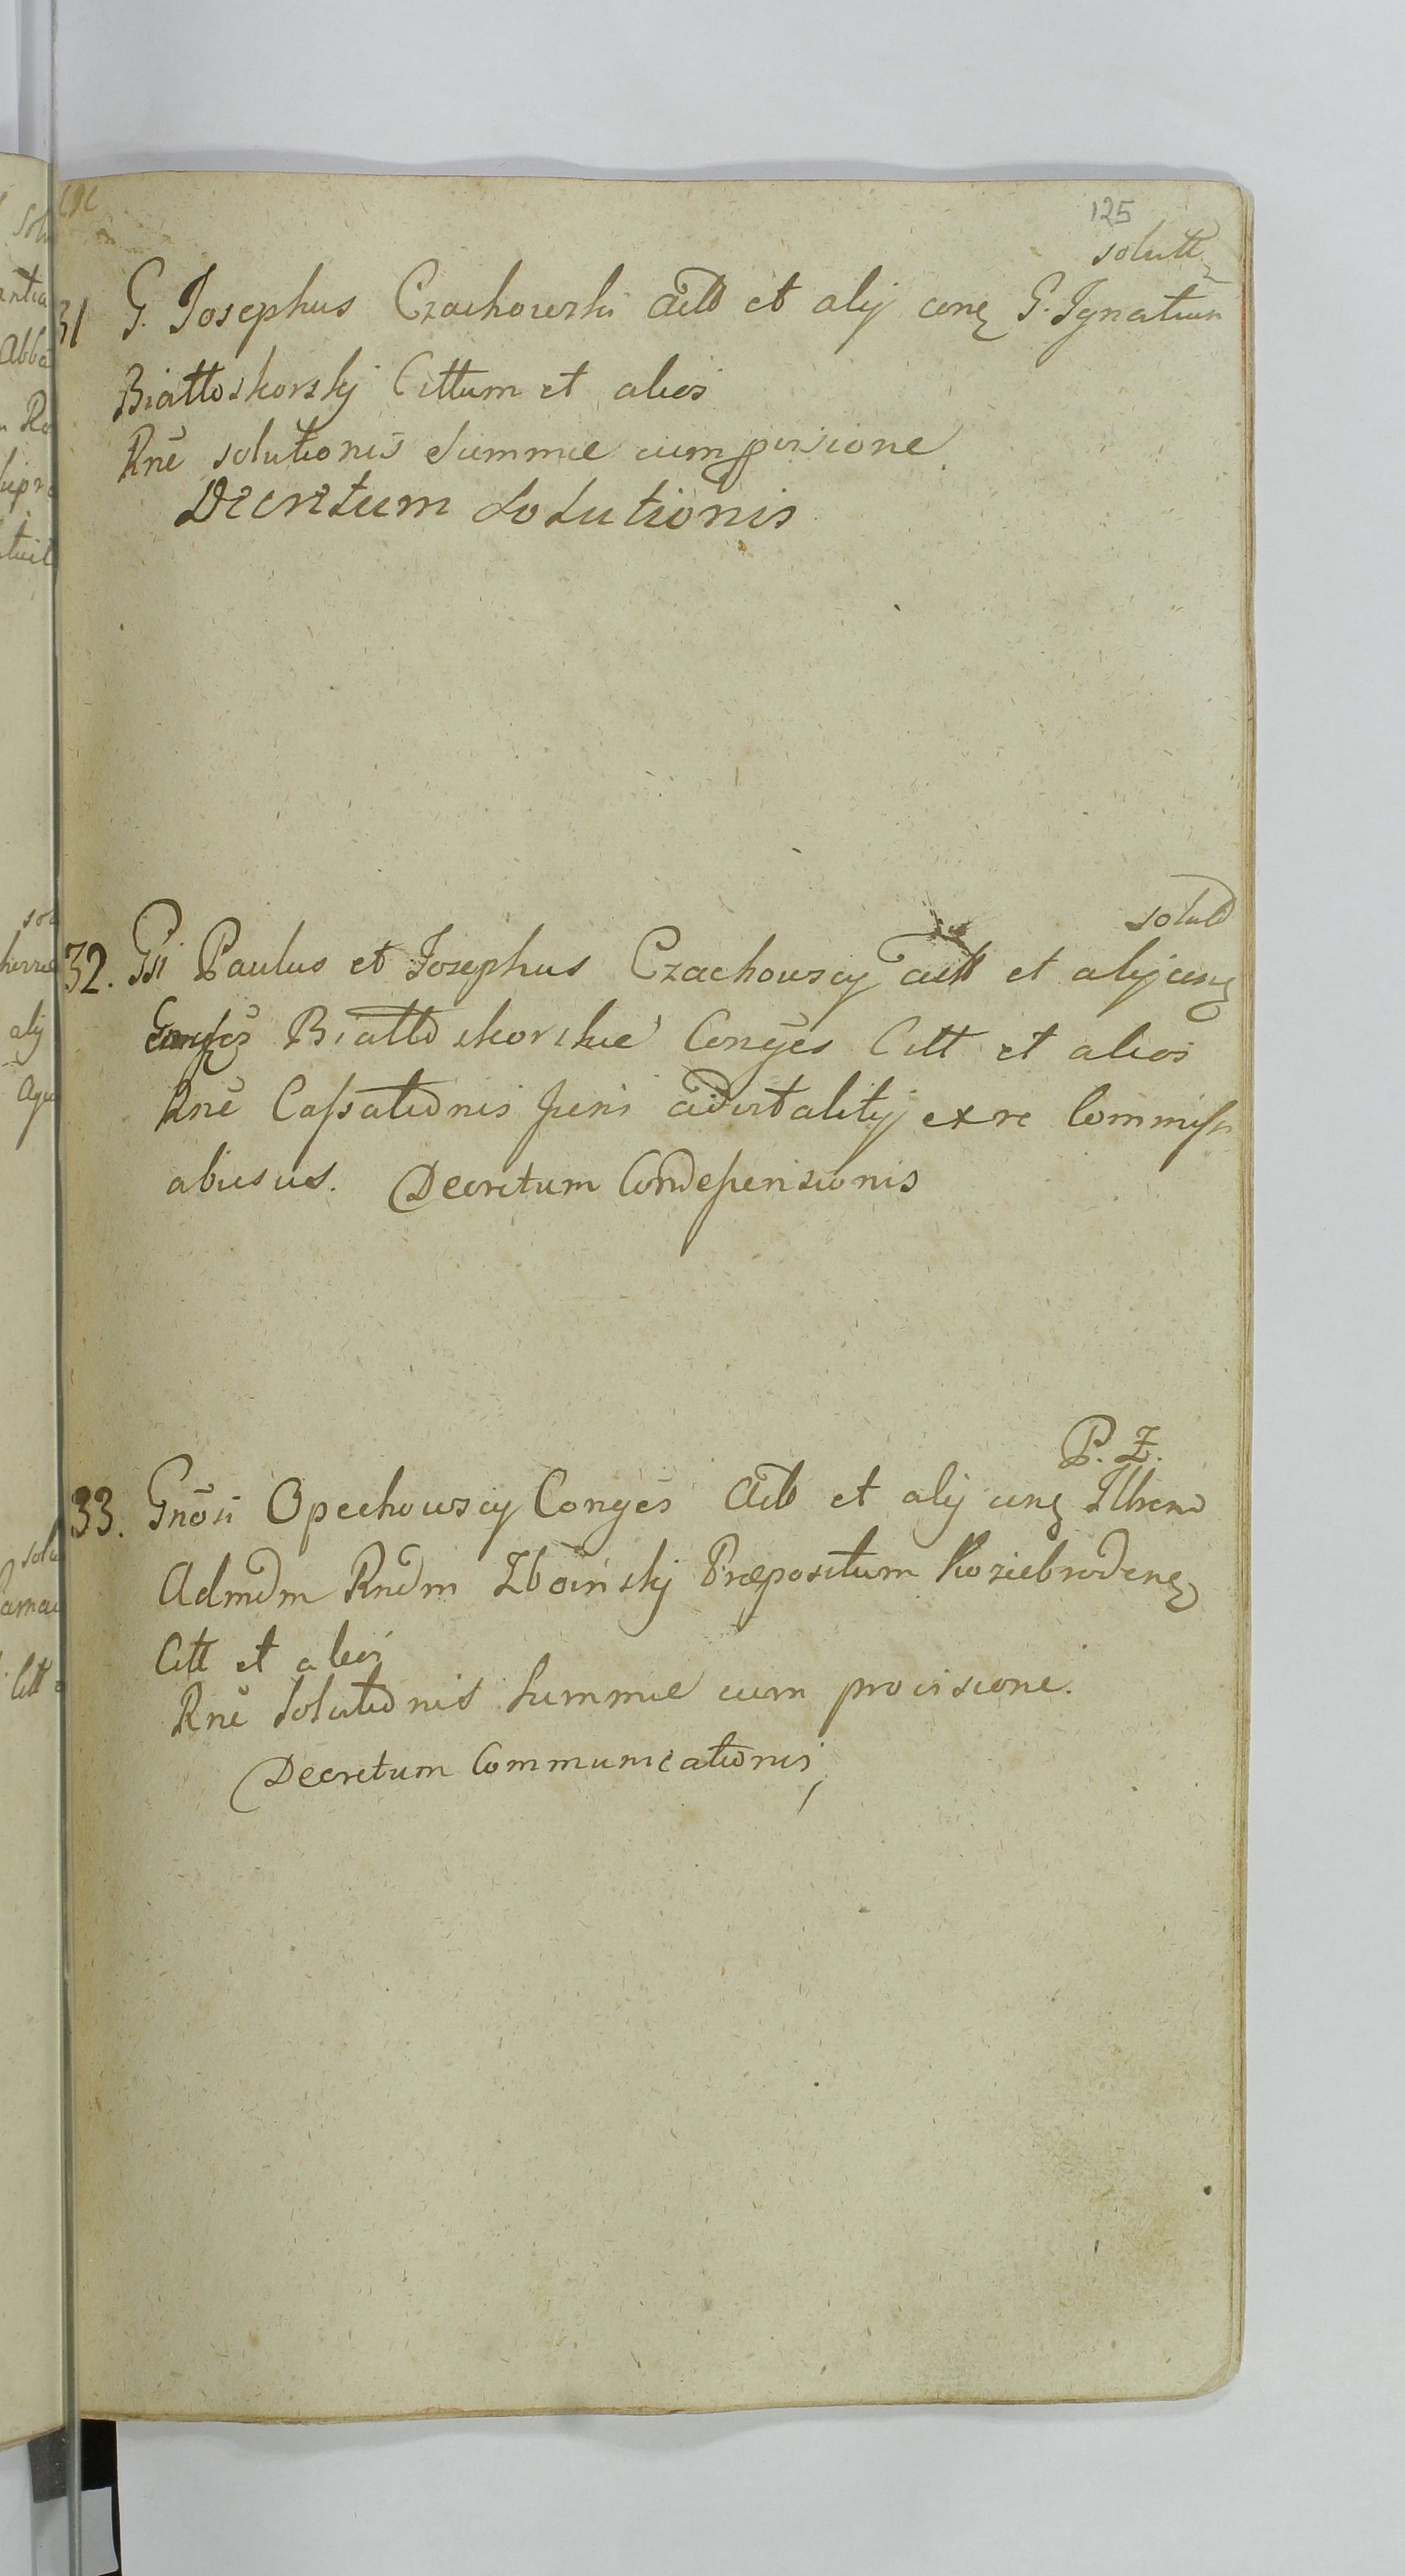 125
solutt
31 G. Josephus Czachowski Actt et alij cones G. Ignatium
Biattoskorskj Cittum et alios
Rñe solutionis Summæ cum pvisione
Decretum Solutionis
solutt
32. Gsi Paulus et Josephus Czachowscy actt et alij cones
Biattoskorskie Conges Citt et alios
Rñe Cassationis juris advitalitij ex re Commissi
abusus. Decretum Condescensionis
P. Z.
33. Gnosi Opechowscy Conges Actt et alij cones Illrem
Admdm Rndm Zboinskj Præpositum Koziebrodens
Citt et alios
Rñe Solutionis Summæ cum provisione.
Decretum Communicationis